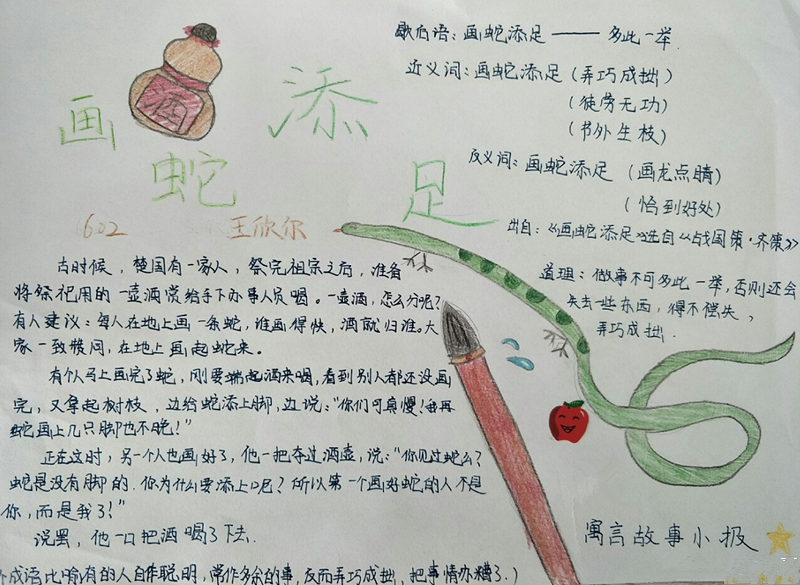 画
蛇
添
足
602 王欣尔
歇后语：画蛇添足——多此一举
近义词：画蛇添足（弄巧成拙）
（徒劳无功）
（节外生枝）
反义词：画蛇添足（画龙点睛）
（恰到好处）
出自：《画蛇添足》选自《战国策·齐策》
道理：做事不可多此一举，否则还会
失去一些东西，得不偿失，
弄巧成拙.
古时候，楚国有一家人，祭完祖宗之后，准备
将祭祀用的一壶酒赏给手下办事人员喝。一壶酒，怎么分呢？
有人建议：每人在地上画一条蛇，谁画得快，酒就归谁。大
家一致赞同，在地上画起蛇来。
有个人马上画完了蛇，刚要端起酒来喝，看到别人都还没画
完，又拿起树枝，边给蛇添上脚，边说："你们可真慢！我再
蛇画上几只脚也不晚！"
正在这时，另一个人也画好了，他一把夺过酒壶，说："你见过蛇么？
蛇是没有脚的，你为什么要添上呢？所以第一个画好蛇的人不是
你，而是我了！"
说罢，他一口把酒喝了下去.
成语比喻有的人自作聪明，常作多余的事，反而弄巧成拙，把事情办糟了.）
寓言故事小报